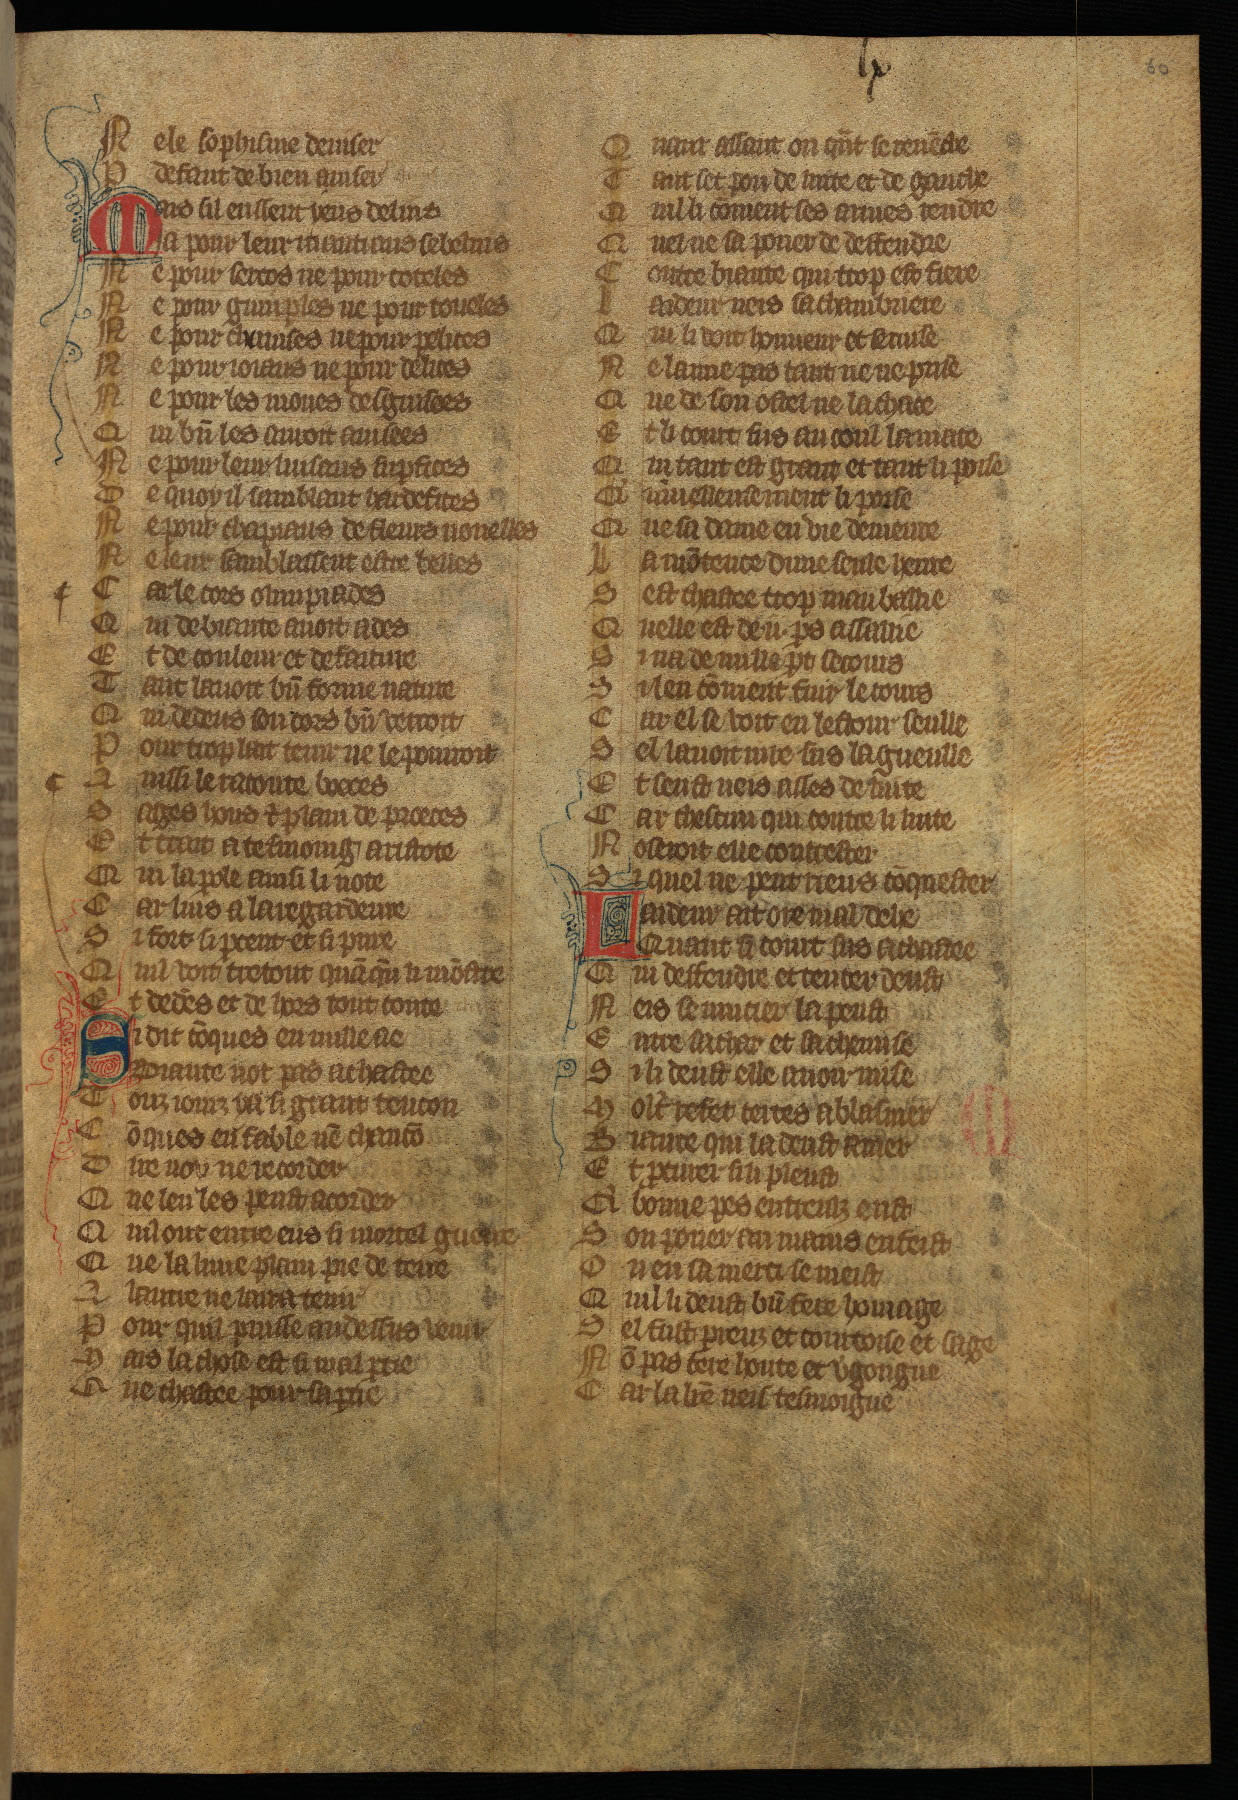 lx
60
N ele sophisme deuiser
P defaut de bien auiser
Mais sil eussent yeus de lins
Ja pour leur mantiaus sebelins
N e pour sercos ne pour coteles
N e pour guimples ne pour toueles
N e pour chemises ne pour pelices
N e pour ioiaus ne pour delices
N e pour les moues desguisees
Q ui bn̄ les auroit auisees
N e pour leur luisans supfices
D e quoy il samblaut bardefices
N e pour chapiaus de fleurs nouuelles
N e leur samblassent estre belles
C ar le cors olimpiades
Q ui de biaute auoit ades
E t de couleur et de faiture
T ant lauoit bn̄ forme nature
Q ui dedens son cors bn̄ verroit
P our trop lait tenir ne le pourroit
A nissi le raconte boeces
S ages hons et plain de proeces
E t trait a tesmoing aristote
Q ui la pole ainsi li note
C ar luis a la regardeure
S i fort si pcent et si pure
Q uil voit tretout quāq̄n li mōstre
E t dedēs et de hors tout contre
Si dit cōques en nulle aé
Biaute not pas a chastee
T ouz iourz va si grant tencon
C ōques en fable nē chancō
D ire noy ne recorder
Q ue len les peust acorder
Q uil ont entre eus si mortel guerre
Q ue la lune plain pie de terre
A lautre ne laira tenir
P our quil puisse au dessus venir
M ais la chose est si mal ptie
Q ue chastee pour sa ptie
Q uant assaut on qn̄t se reuēche
T ant set pou de luite et de gauche
Q uil li cōuient ses armes rendre
Q uel ne sa pouer de deffendre
C ontre biaute qui trop est fiere
L aideur neis sa chambriere
Q ui li doit honneur et seruise
N e laime pas tant ne ne prise
Q ue de son ostel ne la chace
E t li court sus au coul la mace
Q ui tant est grant et tant li poise
Q merueilleusement li poise
Q ue sa dame en vie demeure
L a mōtence dune seule heure
S est chastee trop mau baillie
Q uelle est de ii. ps assaillie
S i na de nulle pt secours
S i len cōuient fuir le cours
C ar el se voit en lestour seulle
S el lauoit iure sus sa gueulle
E t seust neis asses de luite
C ar chescun qui contre li luite
N oseroit elle contrester
S i quel ne peut riens cōquester
Laideur ait ore mal dehe
Quant si court sus a chastee
Q ui deffendre et tenter deust
N eis se mucier la peust
E ntre sa char et sa chemise
S i li deust elle auoir mise
M olt refet certes a blasmer
B iaute qui la deust amer
E t pcurer sil li pleust
Q bonne pes entreulz eust
S on pouer au mains en feist
O u en sa merci se meist
Q uil li deust bn̄ fere homage
S el fust preuz et courtoise et sage
N ō pas fere honte et vgongne
C ar la lr̄e neis tesmoigne